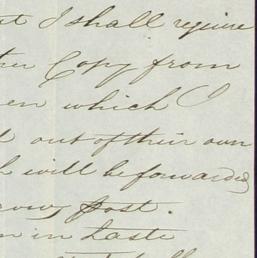 I shall require
Copy from
which I
out of their own
will be forwarded
post.
in haste